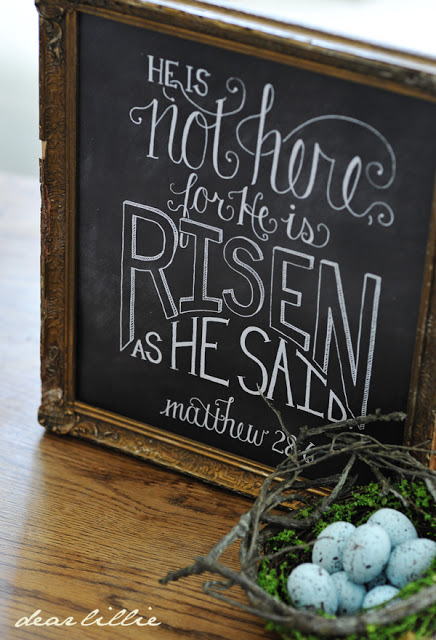 HE IS
not here,
for He is
RISEN
AS HE SAID
matthew 28
dear lillie